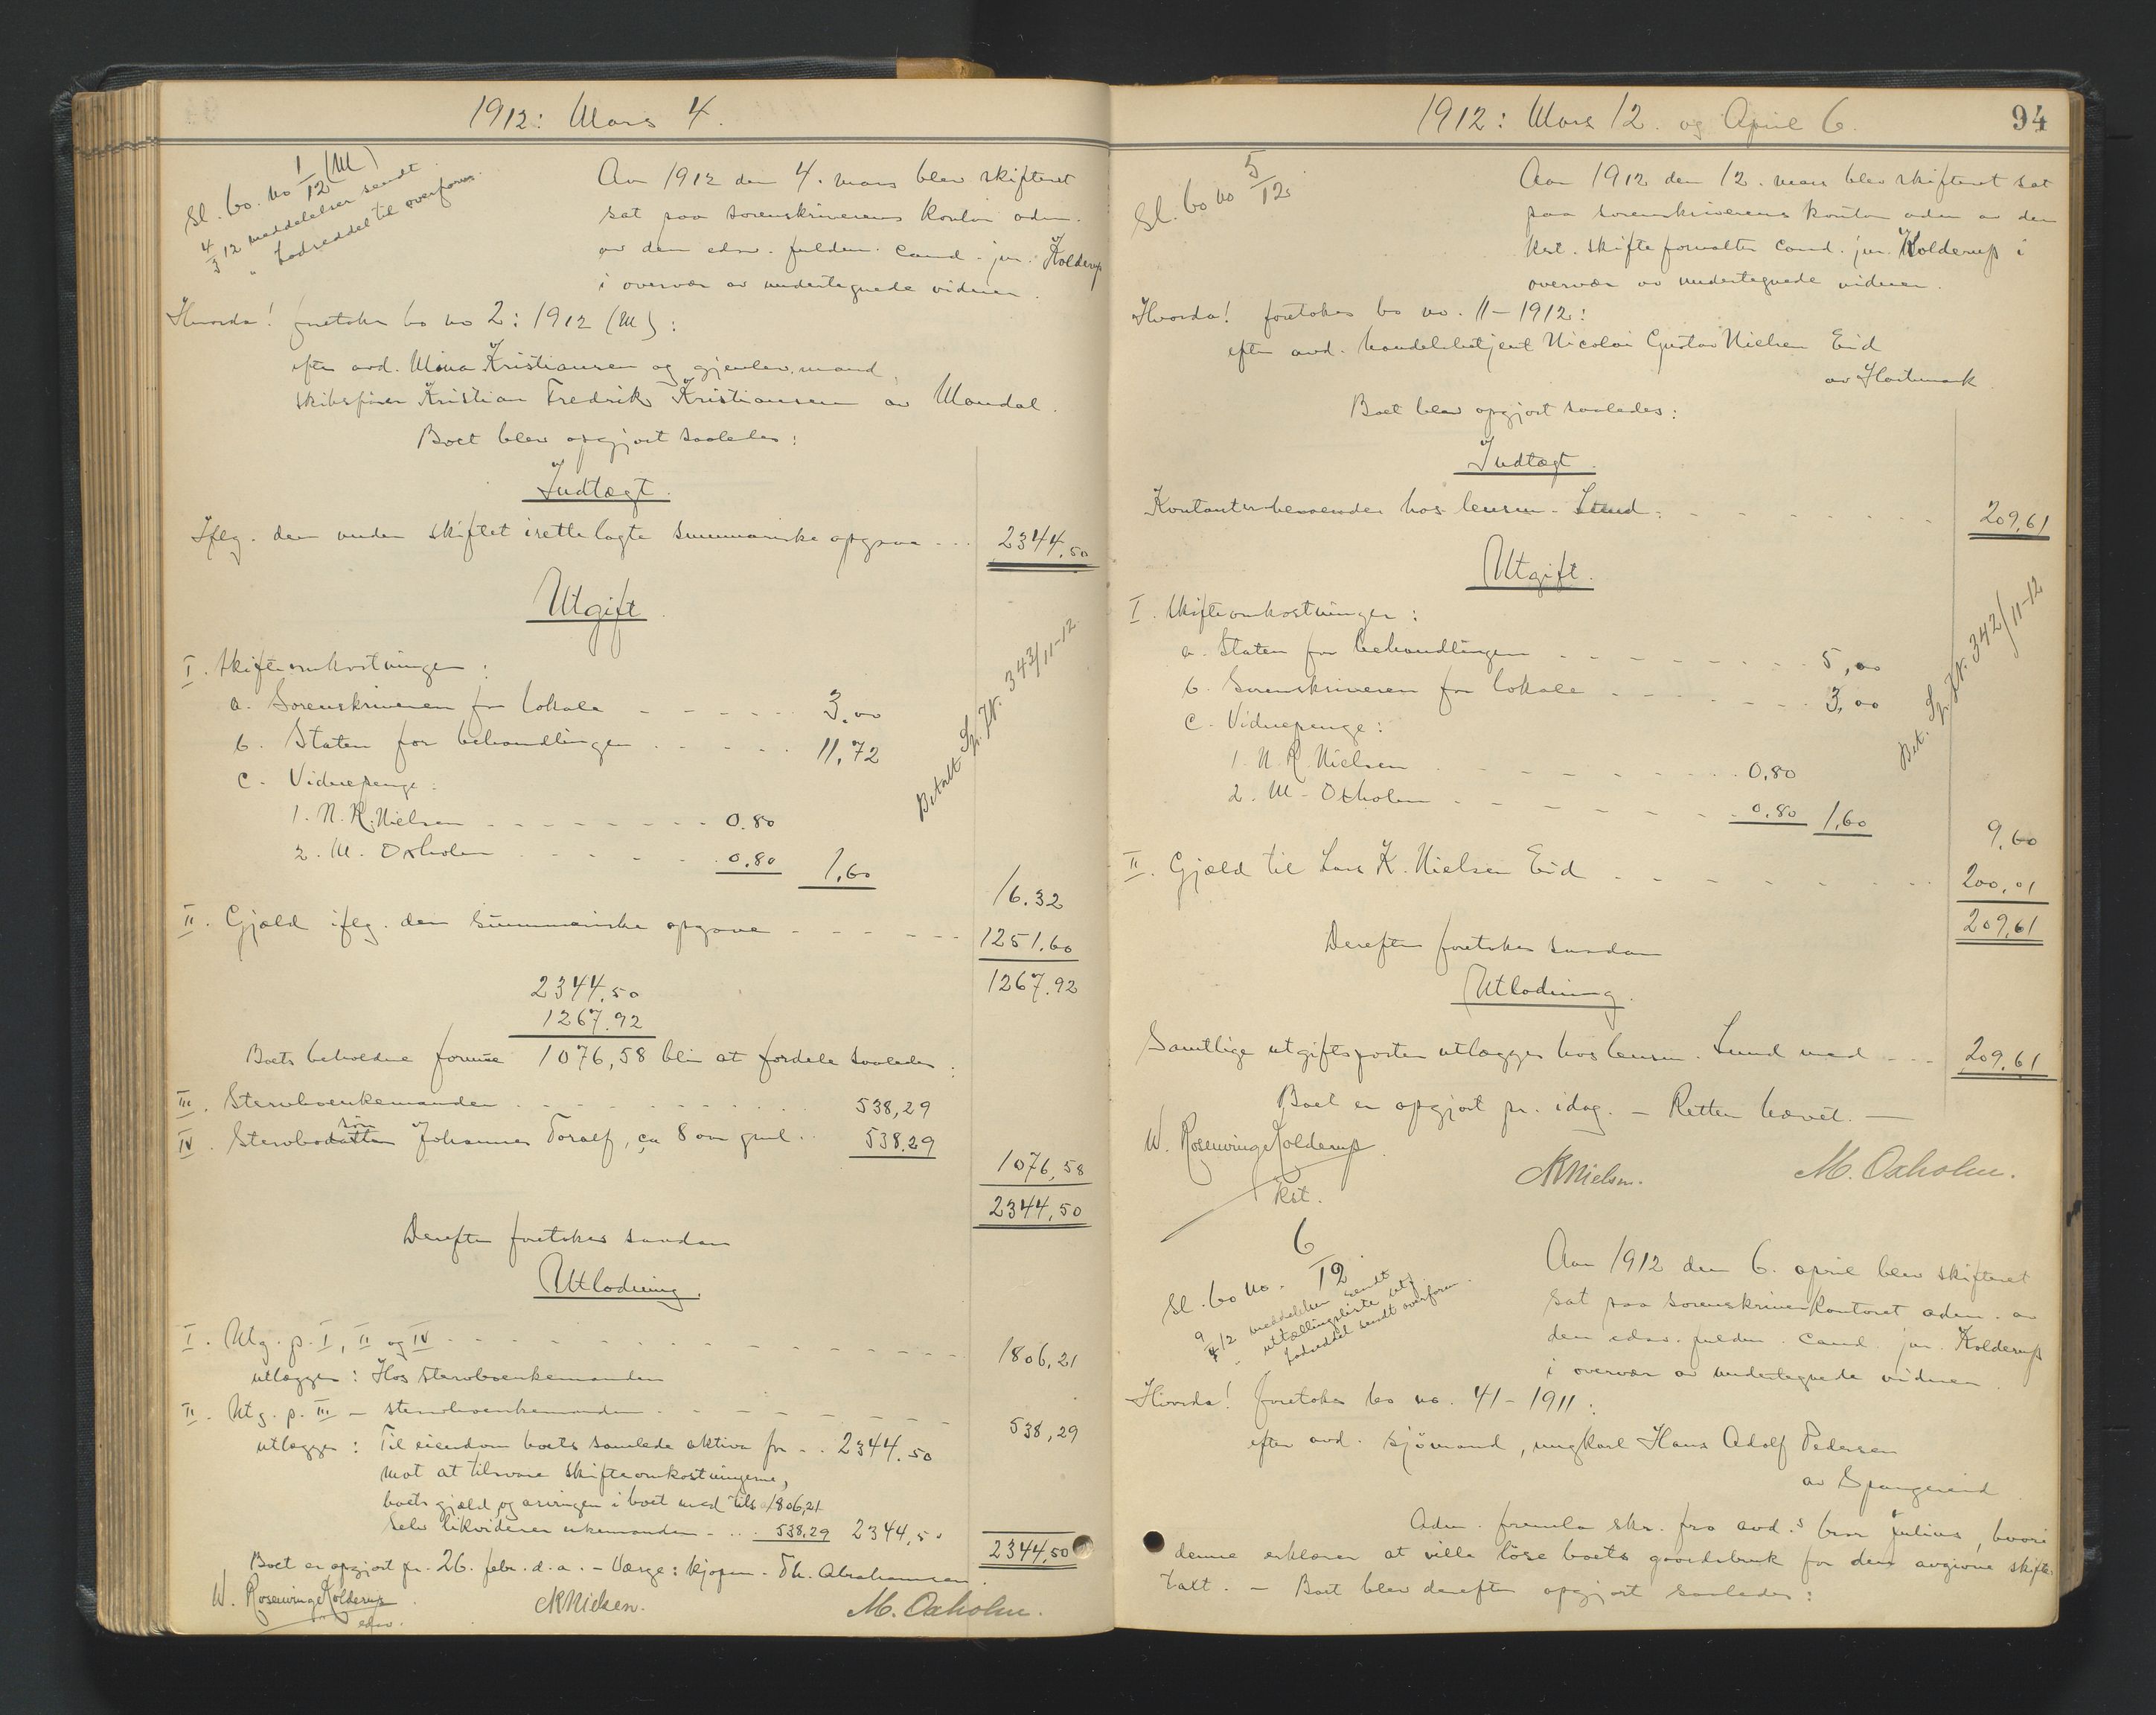 1912: Mars 4.
Sl. bo. no 1/12 (M)
4/3 12 meddelelser sendt
" lodseddel til overform.
Aar 1912 den 4. mars blev skifteret
sat paa sorenskriverens kontor adm.
av den edsv. fuldm. cand. jur. Kolderup
i overvær av undertegnede vidner.
Hvorda! foretokes bo no 2: 1912 (M):
efter avd. Mina Kristiansen og gjenlev. mand,
skibsfører Kristian Fredrik Kristiansen av Mandal.
Boet blev opgjort saaledes:
Indtægt.
Ifølg. den under skiftet irettelagte summariske opgave ... 2344,50
Utgift.
I. Skifteomkostninger:
a. Sorenskriveren for lokale - - - - - 3,00
b. Staten for behandlingen . . . . . 11,72
c. Vidnepenge:
1. N. R. Nielsen - - - - - - - - 0.80
2. M. Oxholm . . . . . . 0.80 1,60
16.32
Betalt Sp. Jr. 343/11-12
II. Gjæld ifølg. den summariske opgave - - - - - - 1251,60
1267.92
2344,50
1267.92
Boets beholdne formue 1076,58 blir at fordele saaledes:
III. Stervboenkemanden . . . . . . . . . 538,29
søn
IV. Stervbodatter Johannes Toralf, ca 8 aar gml. .. 538.29
1076,58
2344,50
Derefter foretokes saadan
Utlodning.
I. Utg. p. I, II og IV - - - - - - - - - - - 1806,21
utlægges: Hos stervboenkemanden
II. Utg. p. III - stervboenkemanden . - - - - - - 538,29
utlægges: Til eiendom boets samlede aktiva for - .. 2344.50
mot at tilsvare skifteomkostningerne,
boets gjæld og arvingen i boet med tils 1806,21
Selv likviderer enkemanden - ... 538.29 2344,50
2344,50
Boet er opgjort pr. 26. febr. d. a. - Værge: kjøpm. Th. Abrahamsen.
W. Rosenvinge Kolderup
edsv.
NRNielsen.
M. Oxholm.
1912: Mars 12. og April 6.
94
Sl. bo no 5/12.
Aar 1912 den 12. mars blev skifteret sat
paa sorenskriverens kontor adm av den
Kst. skifteforvalter cand. jur. Kolderup i
overvær av undertegnede vidner.
Hvorda! foretokes bo no. 11-1912:
efter avd. handelsbetjent Nicolai Gustav Nielsen Eid
av Hartmark.
Boet blev opgjort saaledes:
Indtægt.
Kontanter beroende hos lensm. Lund. - - - - - - - 209,61
Utgift.
I. Skifteomkostninger:
a. Staten for behandlingen - - - - - - - - 5,00
b. Sorenskriveren for lokale - - - - - - - 3,00
c. Vidnepenge:
1. N. R. Nielsen - - - - - - - - 0,80
2. M. Oxholm - - - - - - - - 0,80 1,60
9,60
Bet. Sp. Jr. 342/11-12
II. Gjæld til Lars K. Nielsen Eid . - - - - - - 200,01
209,61
Derefter foretokes saadan
Utlodning.
Samtlige utgiftsposter utlægges hos lensm. Lund med - - - 209,61
Boet er opgjort pr. idag. - Retten hævet. -
W. Rosenvinge Kolderup
Kst.
NRNielsen.
M. Oxholm.
Sl. bo no. 6/12.
9/4 12 meddelelser sendt
" uttællingsliste utf.
lodseddel sendt overform.
Aar 1912 den 6. april blev skifteret
sat paa sorenskriverkontoret adm. av
den edsv. fuldm. cand. jur. Kolderup
i overvær av undertegnede vidner
Hvorda! foretokes bo no. 41-1911:
efter avd. sjømand, ungkarl Hans Adolf Pedersen
av Spangereid
Adm. fremla skr. fra avd.s bror Julius, hvori
denne erklærer at ville løse boets gaardsbruk for den avgivne skifte-
taxt. - Boet blev derefter opgjort saaledes: